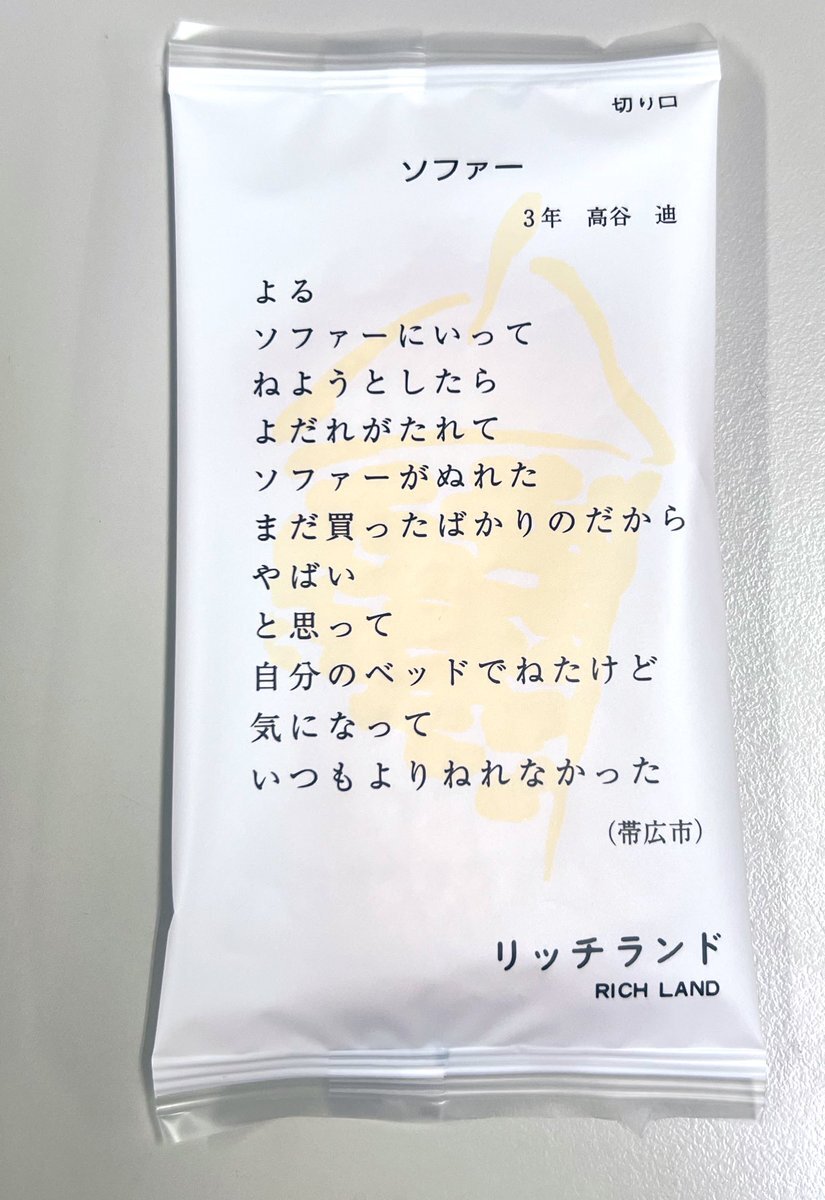 切り口
ソファー
3年　高谷　迪
よる
ソファーにいって
ねようとしたら
よだれがたれて
ソファーがぬれた
まだ買ったばかりのだから
やばい
と思って
自分のベッドでねたけど
気になって
いつもよりねれなかった
（帯広市）
リッチランド
RICH LAND